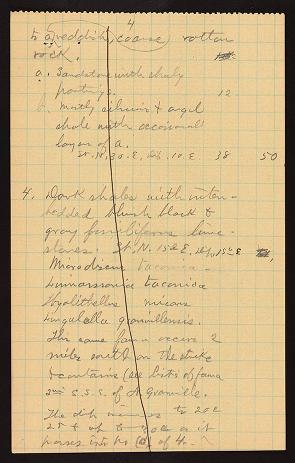 4
5 a, reddish, coarse, rotten
rock.
a. Sandstone with shaly
partings. 12
b. Mostly silicious & argil
shale with occasional
layer of a.
St. N. 30 E, Dip. 10. E. 38 50
4. Dark shales with inter-
bedded bluish black &
gray fossiliferous lime-
stones: St. N. 15 E, Dip 15° E
Microdiscus
Linnarssonia taconica
Hyolithellus micans
Lingulella granvillensis.
The same fauna occurs 2
miles south on the strike
& contains (see lists of fauna
2 mi S.S. of N. Granville.
The dip to 20 E
25 & up to as it
passes into No of 4.